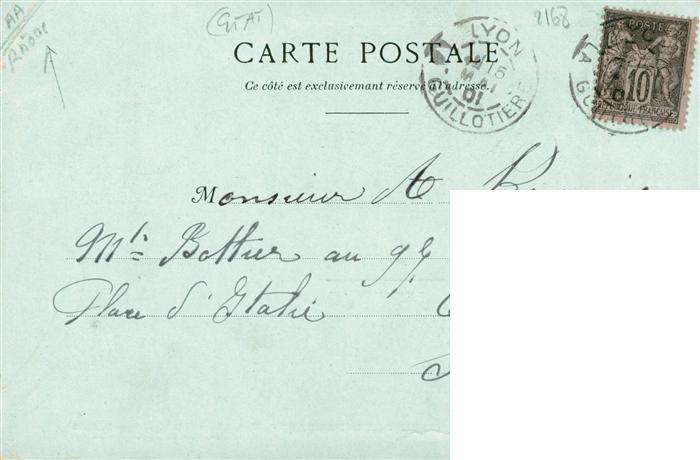 AA
RHÔNE
(ETAT)
2168
CARTE POSTALE
Ce côté est exclusivement réservé à l'adresse.
LYON
MAI
01
GUILLOTIERE
POSTES
10
LA GU
Monsieur A
Mt Bottier au 97
Place d'Italie